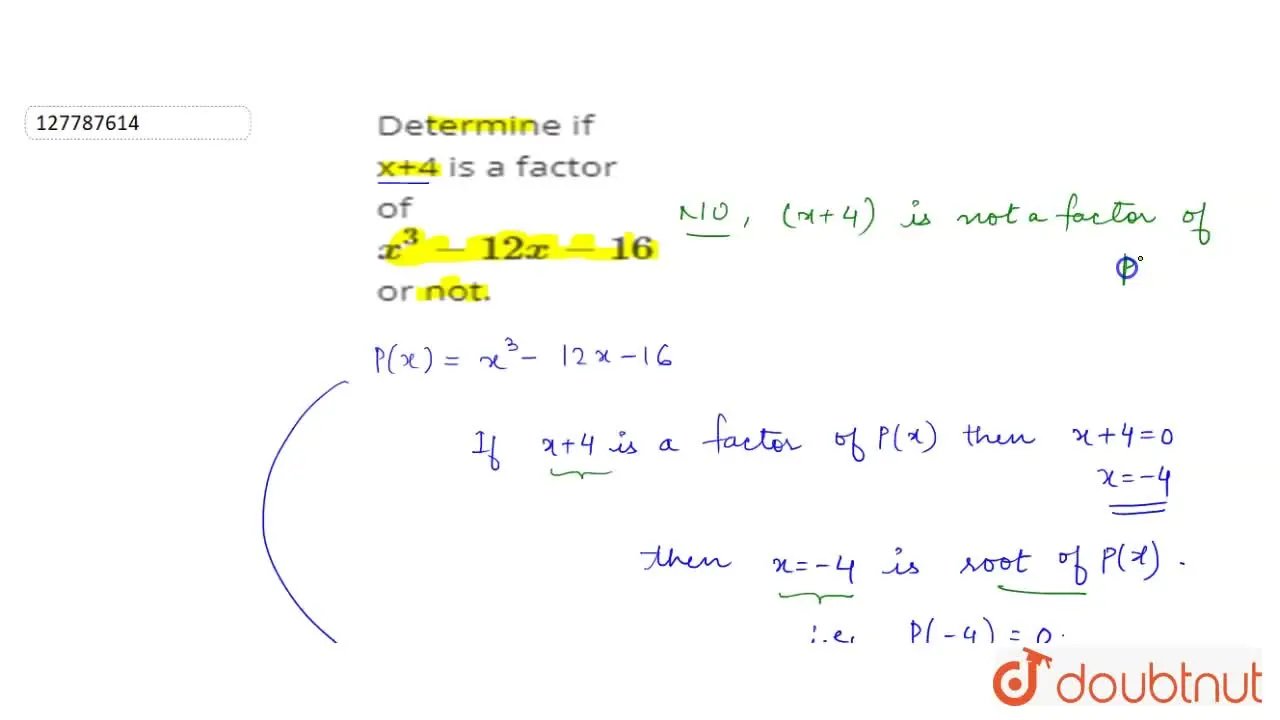 127787614
Determine if
x+4 is a factor
of
x³ − 12x − 16
or not.
NO, (x+4) is not a factor of
P
P(x) = x³ − 12x − 16
If x+4 is a factor of P(x) then x+4=0
x=−4
then x=−4 is root of P(x).
i.e. P(−4) = 0.
doubtnut